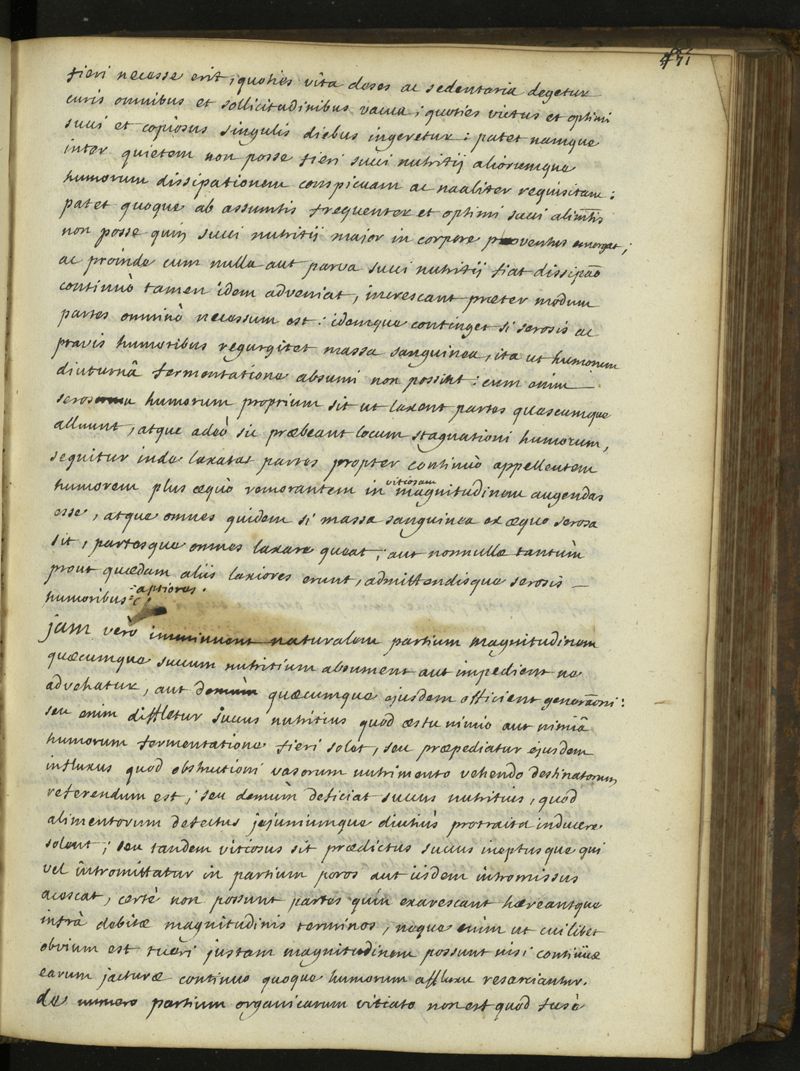 451
fieri necesse erit; quoties vita deses ac sedentaria degetur
curis omnibus et sollicitudinibus vacua; quoties victus et optimi
succi et copiosus singulis diebus ingeretur: patet namque
inter quietem non posse fieri succi nutritij aliorumque
humorum dissipationem conspicuam ac naaliter requisitam:
patet quoque ab assumtis frequenter et optimi succi alimtis
non posse quin succi nutritii major in corpore proventus emergat;
ac proinde cum nulla aut parva succi nutritij fiat dissipao
continuò tamen idem adveniat, increscant præter modum
partes omninò necessum est: idemque continget si serosis ac
pravis humoribus regurgitet massa sanguinea, ita ut humorum
diuturnâ fermentatione absumi non possint: cum enim
seros humorum proprium sit ut laxent partes quascumque
alluunt, atque adeò sic præbeant locum stagnationi humorum,
sequitur inde laxatas partes propter continuò appellentem
humorem plus æquò remorantem in vitiosam magnitudinem augendas
esse, atque omnes quidem si massa sanguinea ex æquo serosa
sit, partesque omnes laxare queat; aut nonnullæ tantùm
prout quædam aliis laxiores erunt, admittendisque serosis
humoribus aptiores.
jam verò imminuent naturalem partium magnitudinem
quæcumque succum nutritium absument aut impedient ne
advehatur, aut demùm quæcumque ejusdem officient generaoni:
seu enim diffletur succus nutritius quod æstu nimio aut nimiâ
humorum fermentatione fieri solet, seu præpediatur ejusdem
influxus quod obstructioni vasorum nutrimento vehendo destinatorum
referendum est; seu demùm deficiat succus nutritius, quod
alimentorum defectus jejuniumque diutiùs protracta inducere
solent; seu tandem vitiosus sit prædictus succus ineptusque qui
vel intromittatur in partium poros aut iisdem intromissus
acescat, certè non possunt partes quin exarescant hæreantque
intrà debitæ magnitudinis terminos, neque enim ut cuilibet
obvium est tueri justam magnitudinem possunt nisi continuæ
earum jacturæ continuo quoque humorum affluxu resarciantur.
de numero partium organicarum vitiato non est quod fusè